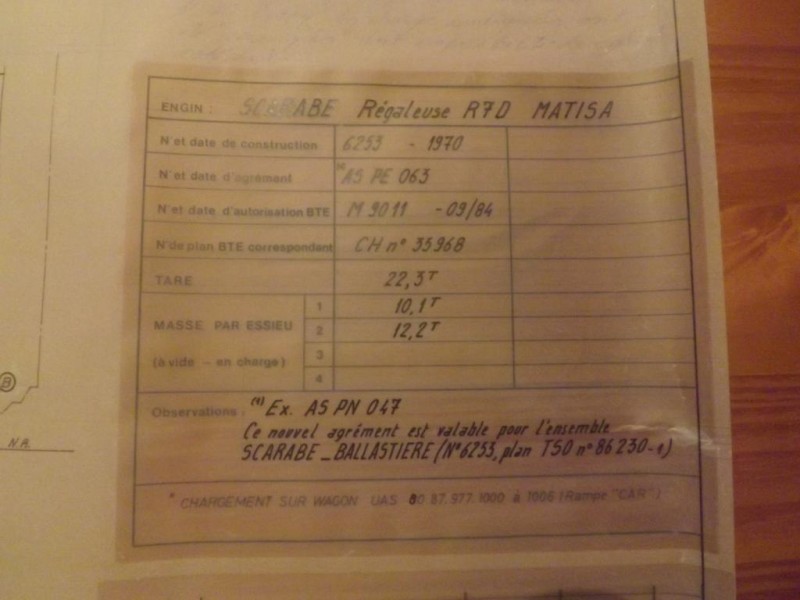 ENGIN : SCARABE Régaleuse R7D MATISA
N° et date de construction 6253 - 1970
N° et date d'agrément (1) AS PE 063
N° et date d'autorisation BTE M 9011 - 09/84
N° de plan BTE correspondant CH n° 35968
TARE 22,3T
MASSE PAR ESSIEU
(à vide - en charge)
1 10,1T
2 12,2T
3
4
Observations : (1) Ex. AS PN 047
Ce nouvel agrément est valable pour l'ensemble
SCARABE - BALLASTIERE (N° 6253, plan TSO n° 86 230-1)
* CHARGEMENT SUR WAGON UAS 80.87.977.1000 à 1006 (Rampe "CAR")
B
N.R.